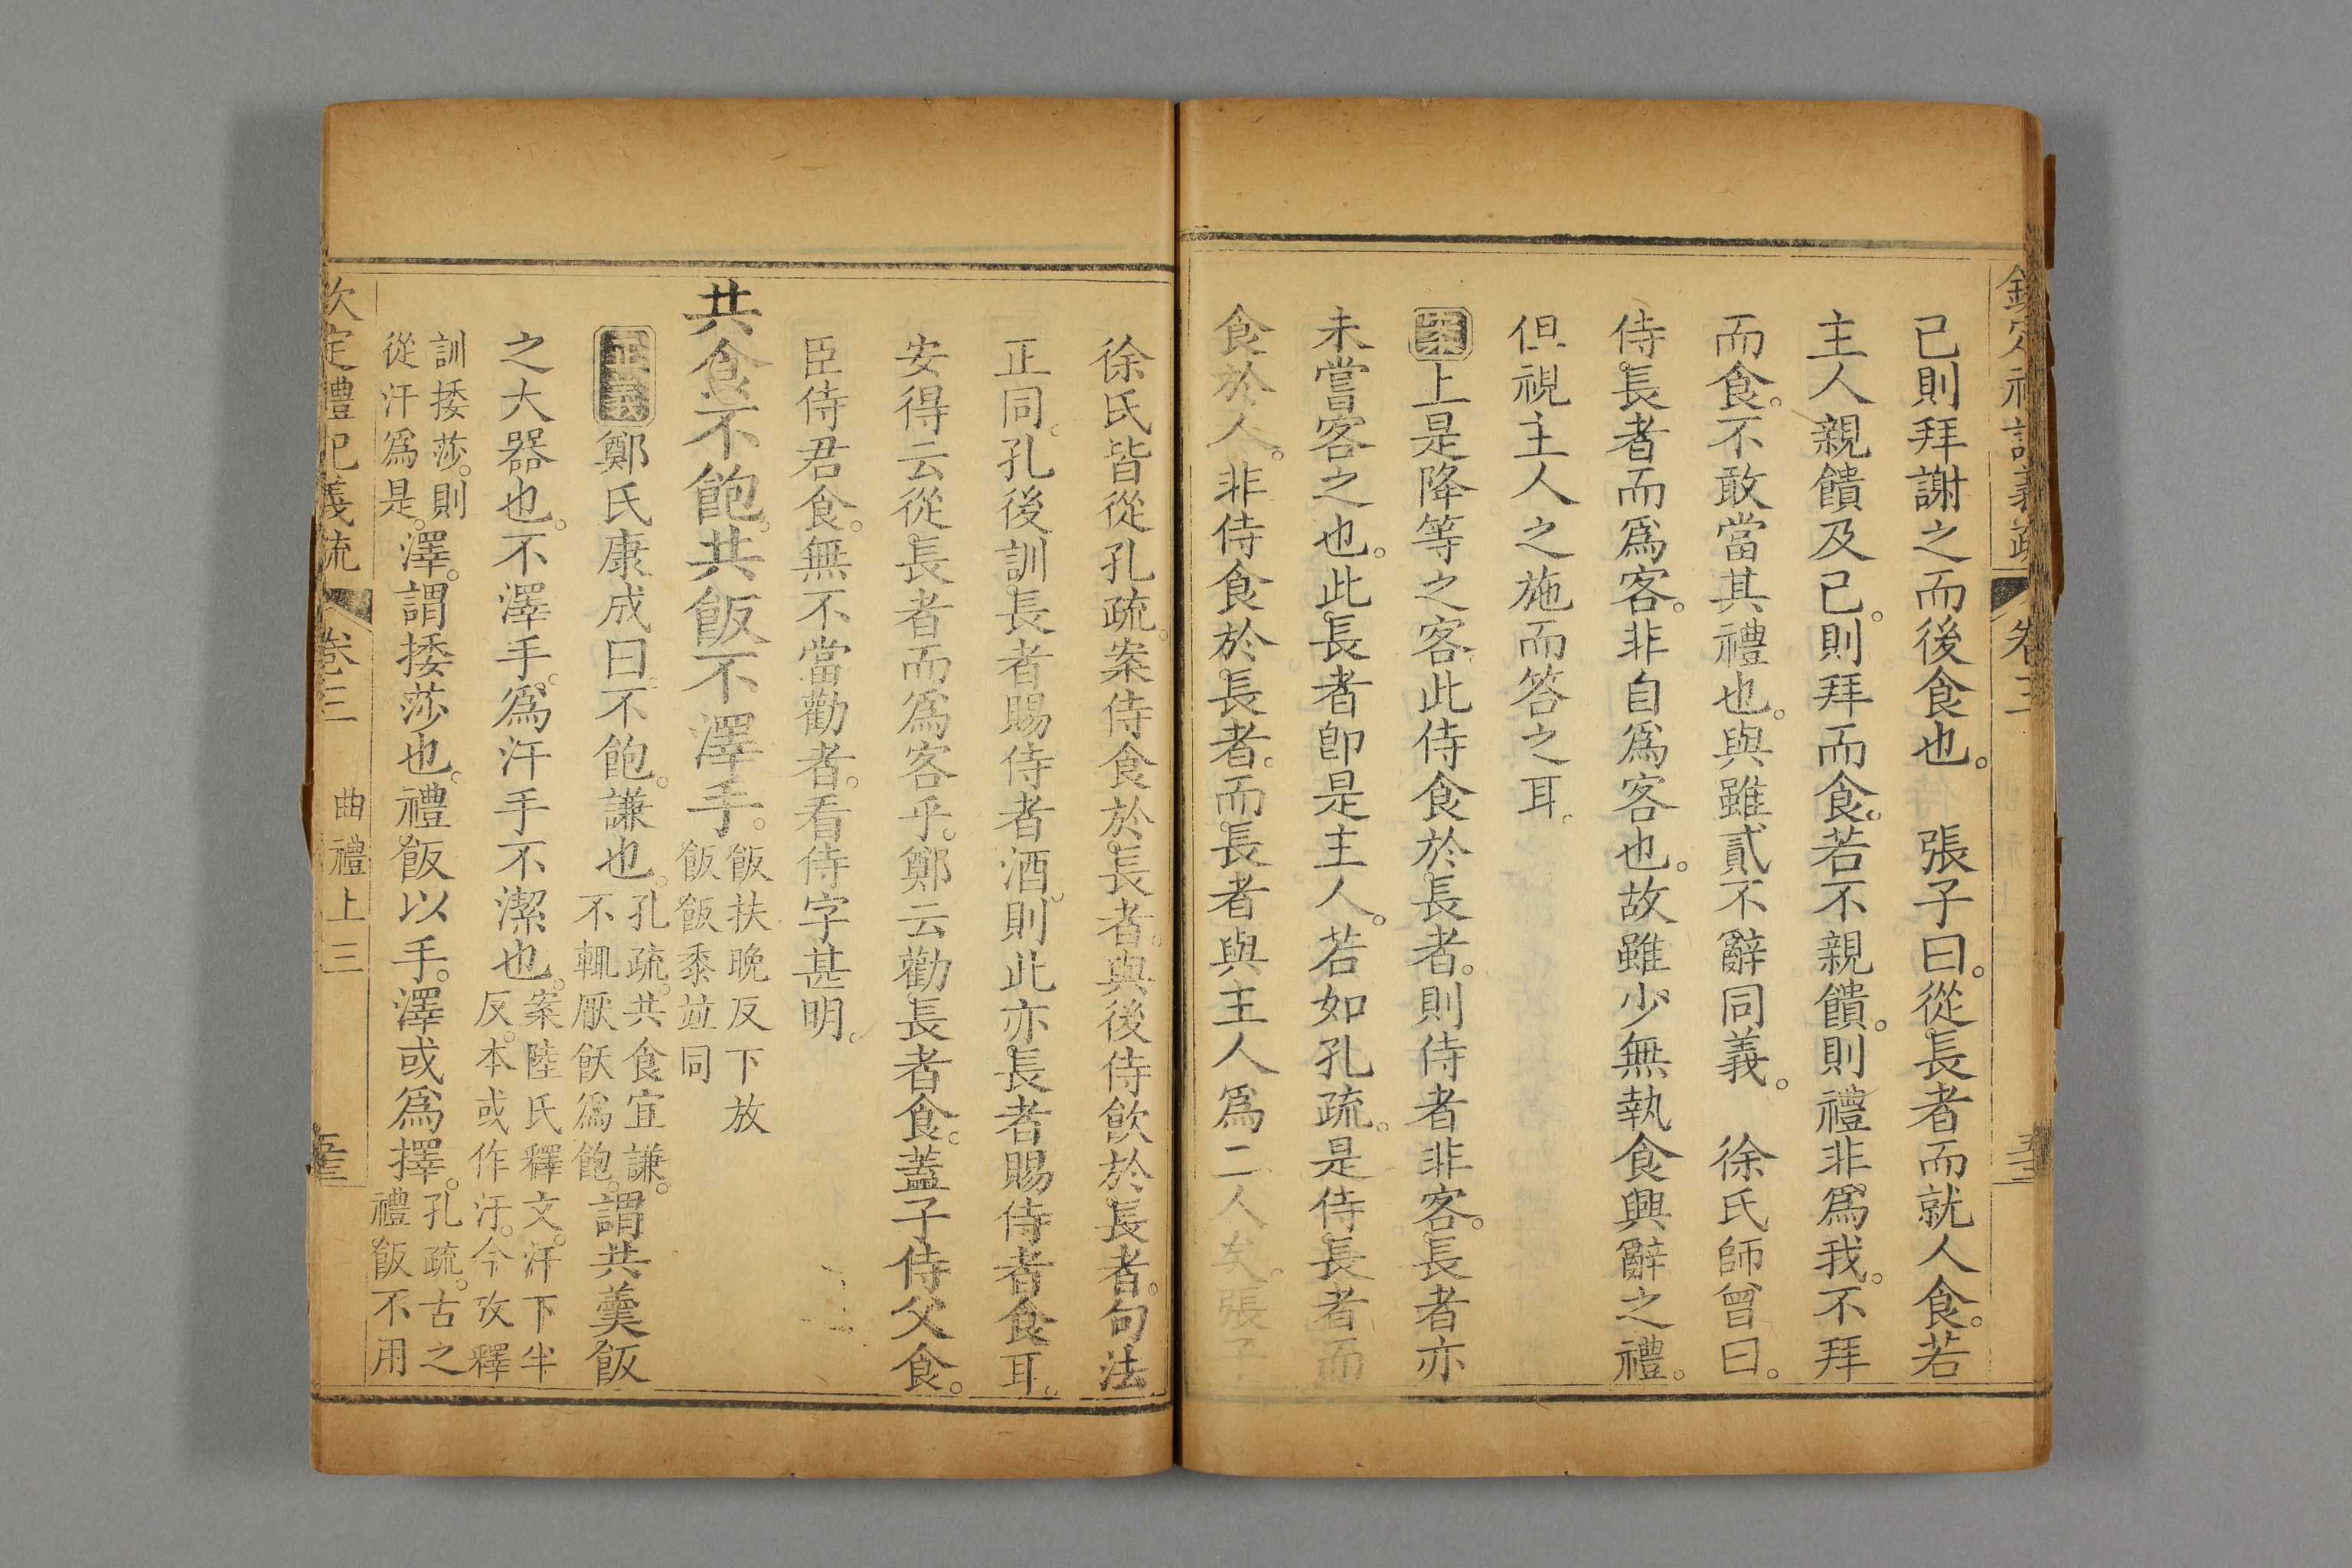 欽定禮記義疏 卷三
已則拜謝之而後食也。 張子曰。從長者而就人食。若
主人親饋及已。則拜而食。若不親饋。則禮非爲我。不拜
而食。不敢當其禮也。與雖貳不辭同義。 徐氏師曾曰。
侍長者而爲客。非自爲客也。故雖少無執食興辭之禮。
但視主人之施而答之耳。
案上是降等之客此侍食於長者。則侍者非客。長者亦
未嘗客之也。此長者卽是主人。若如孔疏。是侍長者而
食於人。非侍食於長者。而長者與主人爲二人矣。張子
徐氏皆從孔疏。案侍食於長者。與後侍飲於長者。句法
正同。孔後訓長者賜侍者酒。則此亦長者賜侍者食耳。
安得云從長者而爲客乎。鄭云勸長者食。蓋子侍父食。
臣侍君食。無不當勸者。看侍字甚明。
共食不飽。共飯不澤手。飯扶晚反下放
飯飯黍竝同
正義鄭氏康成曰。不飽。謙也。孔疏。共食宜謙。
不輒厭飫爲飽。謂共羹飯
之大器也。不澤手。爲汗手不潔也。案陸氏釋文。汗下半
反。本或作汙。今攷釋
訓捼莎。則
從汗爲是。澤。謂捼莎也。禮飯以手。澤或爲擇。孔疏。古之
禮飯不用
欽定禮記義疏 卷三 曲禮上三